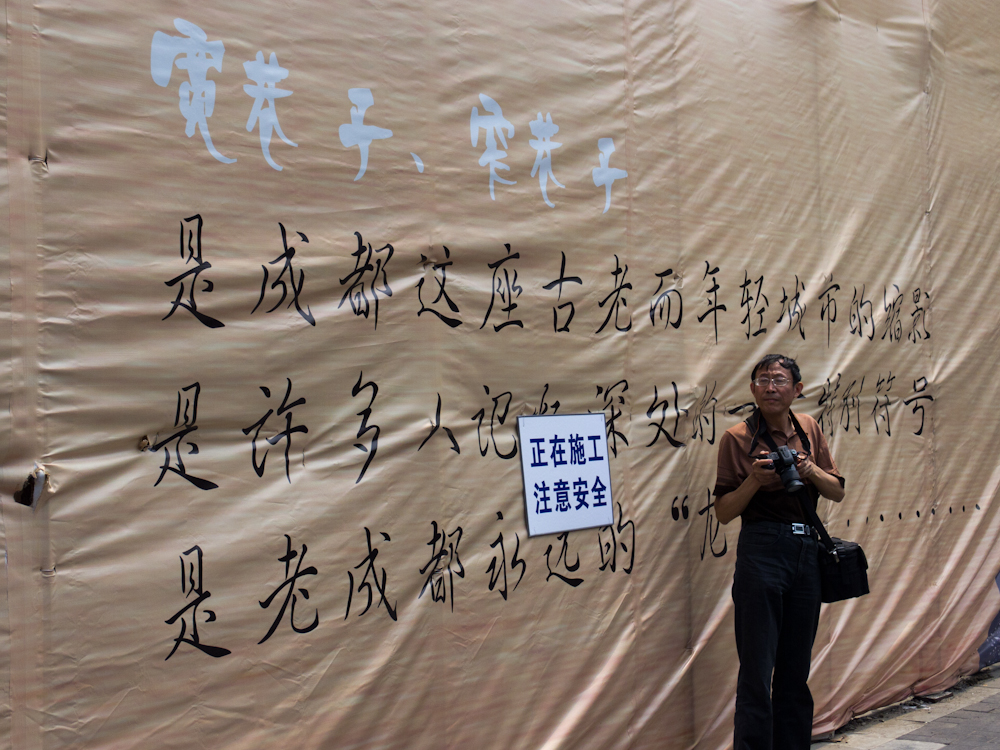 宽巷子、窄巷子
是成都这座古老而年轻城市的缩影
是许多人记深处的特别符号
是老成都永远的“龙………
正在施工
注意安全